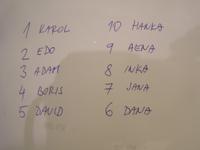 1 KAROL
2 EDO
3 ADAM
4 BORIS
5 DAVID
10 HANKA
9 ALENA
8 INKA
7 JANA
6 DANA